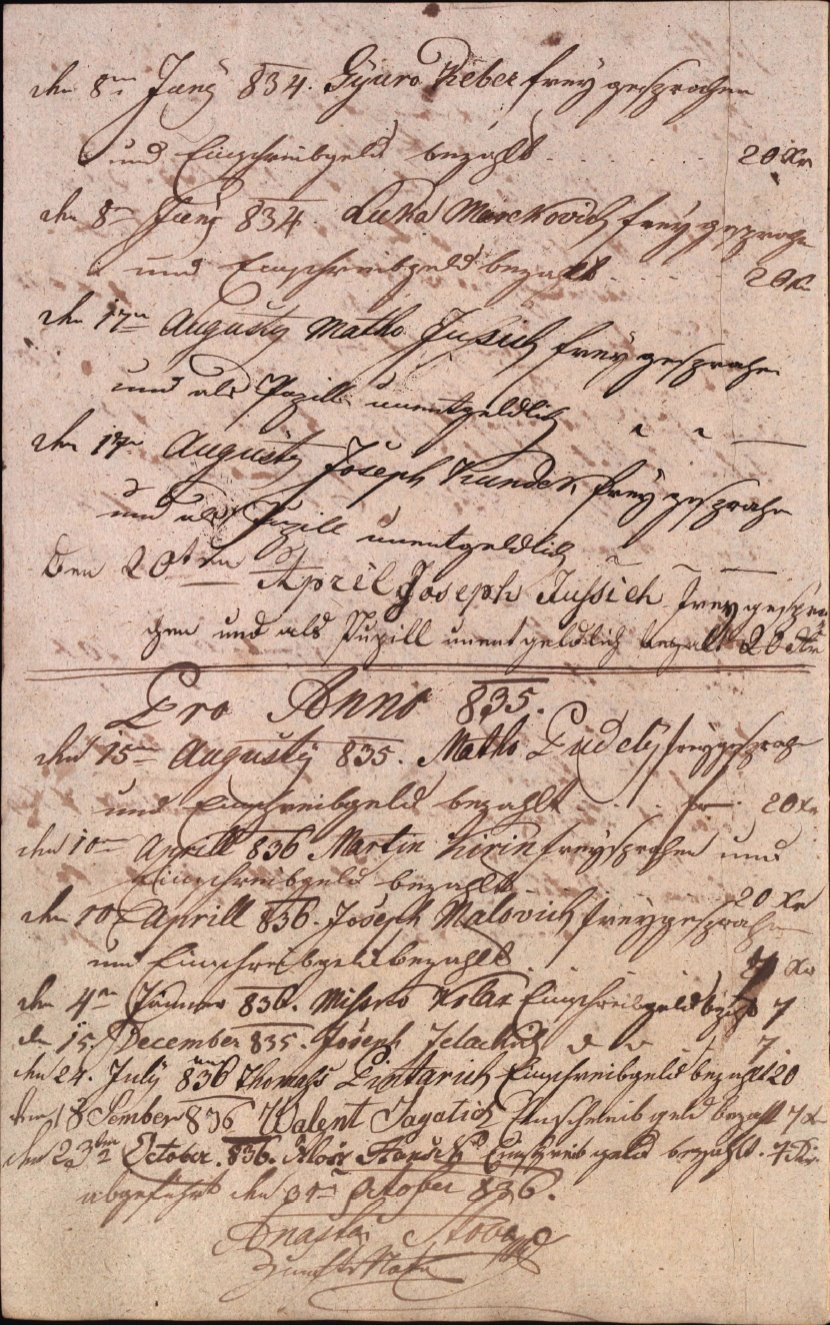 den 8ten Juny 834. Gyuro Kieber frey gesprochen
und Einschreibgeld bezahlt 20 Xr
den 8ten Juny 834. Luka Marckovich frey gesproche
und Einschreibgeld bezahlt 20 Xr
den 17ten Augusty Matho Jusich frey gesprochen
und als Pupill unentgeldlich
den 17ten Augusty Joseph Kunder frey gesprochen
und als Pupill unentgeldlich
Den 20ten April Joseph Jussich frey gespro
chen und als Pupill unentgeldlich bezalt 20 Xr
Pro Anno 835.
den 15ten Augusty 835. Matho Gudely freygesproche
und Einschreibgeld bezahlt 20 Xr
den 10ten Aprill 836 Martin Kirin freygesprochen und
Einschreibgeld bezahlt 20 Xr
den 10ten Aprill 836. Joseph Malovich freygesprochen
und Einschreibgeld bezahlt Xr
den 4ten Jänner 836. Kolar Einschreibgeld bezahlt 7
den 15. December 835. Joseph Jelachich 7
den 24. July 836 Thomass Pintarich Einschreibgeld bezahlt 20
836 Walent Jagatich Einschreibgeld bezahlt 7 Xr
den 23ten October. 836. Einschreibgeld bezahlt. 7 Xr
abgeführt den October 836.